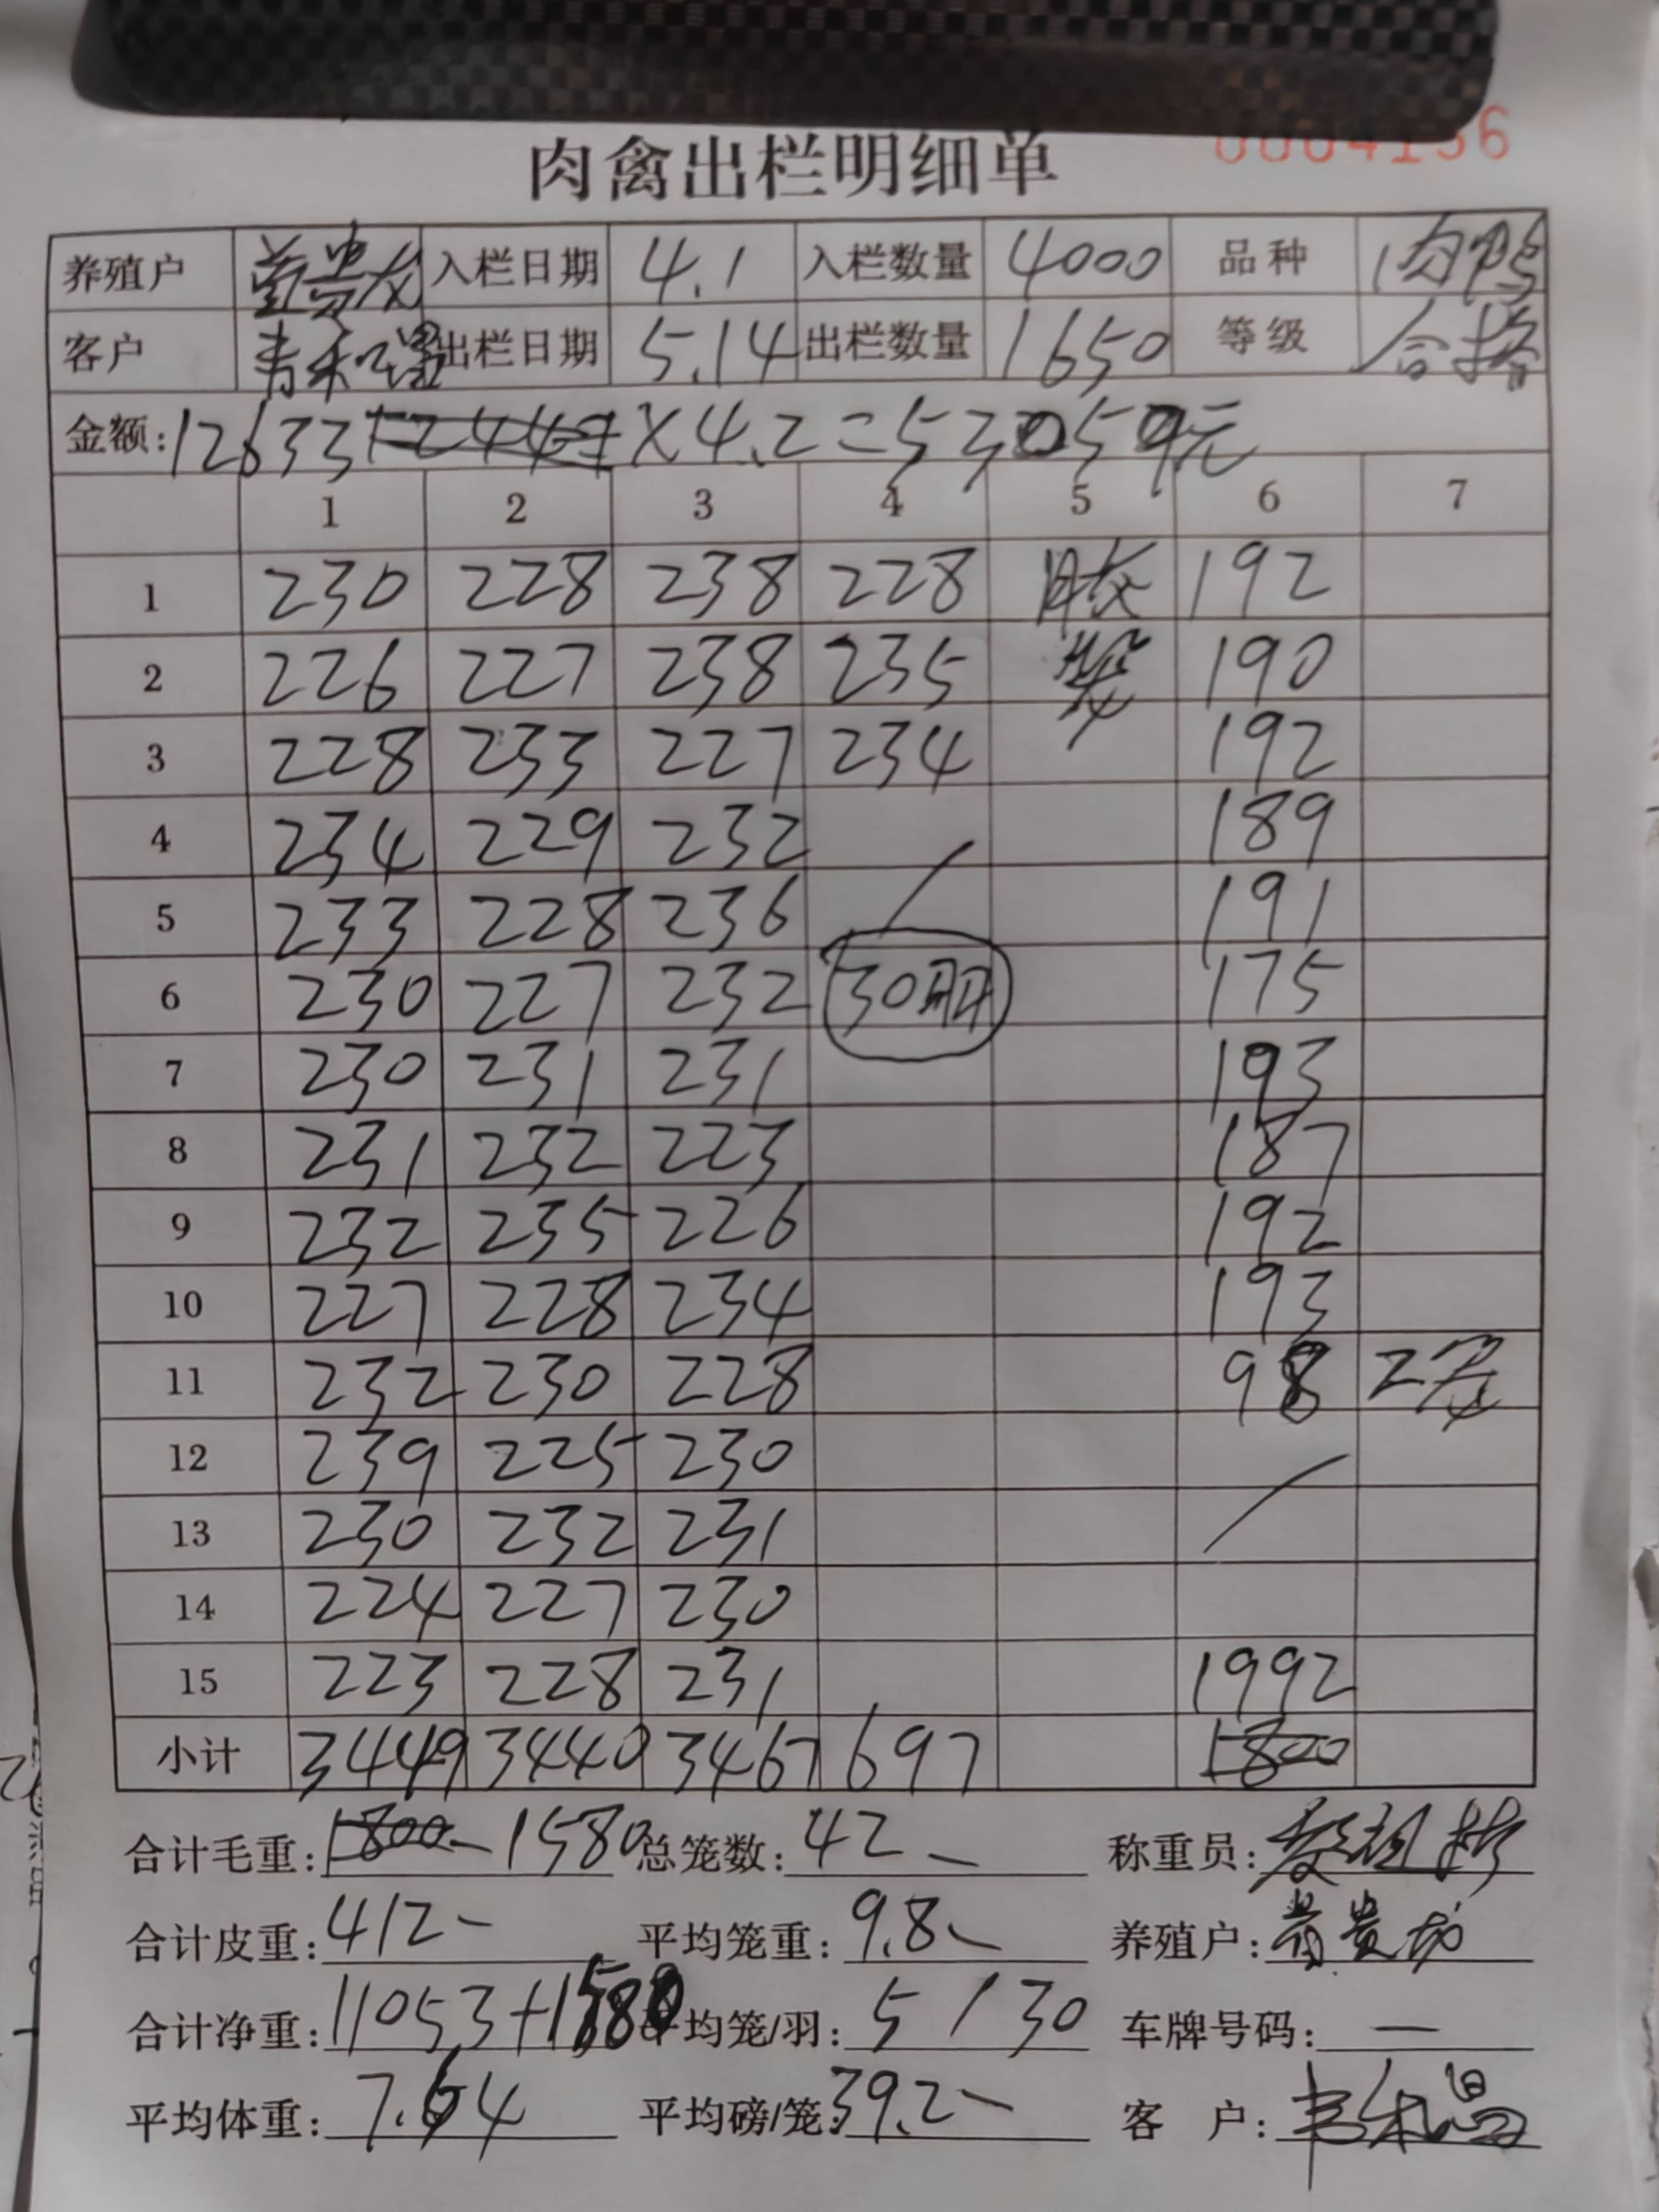 0004136
肉禽出栏明细单
养殖户 黄贵龙 入栏日期 4.1 入栏数量 4000 品种 肉鸭
客户 出栏日期 5.14 出栏数量 1650 等级 合格
金额: 12633 X4.2=53059元
1 2 3 4 5 6 7
1 230 228 238 228 192
2 226 227 238 235 190
3 228 233 227 234 192
4 234 229 232 189
5 233 228 236 191
6 230 227 232 30 175
7 230 231 231 193
8 231 232 223 187
9 232 235 226 192
10 227 228 234 193
11 232 230 228 98
12 239 225 230
13 230 232 231
14 224 227 230
15 223 228 231 1992
小计 3449 3440 3467 697 1800
合计毛重: 1800 1580 总笼数: 42 称重员:
合计皮重: 412 平均笼重: 9.8 养殖户: 黄贵龙
合计净重: 11053+1580 平均笼/羽: 5/30 车牌号码: —
平均体重: 7.64 平均磅/笼: 39.2 客户: